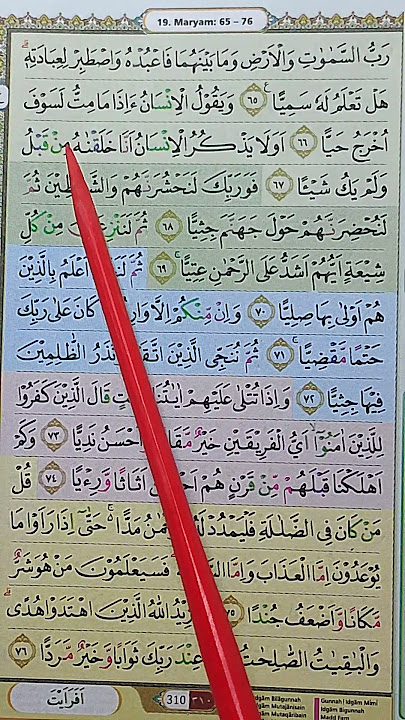 19. Maryam: 65 – 76
رَبُّ السَّمٰوٰتِ وَالْاَرْضِ وَمَا بَيْنَهُمَا فَاعْبُدْهُ وَاصْطَبِرْ لِعِبَادَتِهٖۗ
هَلْ تَعْلَمُ لَهٗ سَمِيًّا ࣖ ٦٥ وَيَقُوْلُ الْاِنْسَانُ ءَاِذَا مَا مِتُّ لَسَوْفَ
اُخْرَجُ حَيًّا ٦٦ اَوَلَا يَذْكُرُ الْاِنْسَانُ اَنَّا خَلَقْنٰهُ مِنْ قَبْلُ
وَلَمْ يَكُ شَيْـًٔا ٦٧ فَوَرَبِّكَ لَنَحْشُرَنَّهُمْ وَالشَّيٰطِيْنَ ثُمَّ
لَنُحْضِرَنَّهُمْ حَوْلَ جَهَنَّمَ جِثِيًّا ٦٨ ثُمَّ مِنْ كُلِّ
شِيْعَةٍ اَيُّهُمْ اَشَدُّ عَلَى الرَّحْمٰنِ عِتِيًّا ٦٩ ثُمَّ اَعْلَمُ بِالَّذِيْنَ
هُمْ اَوْلٰى بِهَا صِلِيًّا ٧٠ وَاِنْ مِّنْكُمْ اِلَّا كَانَ عَلٰى رَبِّكَ
حَتْمًا مَّقْضِيًّا ٧١ ثُمَّ نُنَجِّى الَّذِيْنَ الظّٰلِمِيْنَ
فِيْهَا جِثِيًّا ٧٢ وَاِذَا تُتْلٰى عَلَيْهِمْ قَالَ الَّذِيْنَ كَفَرُوْا
لِلَّذِيْنَ اٰمَنُوْٓا اَيُّ الْفَرِيْقَيْنِ خَيْرٌ نَدِيًّا ٧٣ وَكَمْ
اَهْلَكْنَا قَبْلَهُمْ مِّنْ قَرْنٍ هُمْ اَثَاثًا وَّرِءْيًا ٧٤ قُلْ
مَنْ كَانَ فِى الضَّلٰلَةِ فَلْيَمْدُدْ مَدًّا ەۚ حَتّٰىٓ اِذَا رَاَوْا مَا
يُوْعَدُوْنَ اِمَّا الْعَذَابَ وَاِمَّا فَسَيَعْلَمُوْنَ مَنْ هُوَ شَرٌّ
مَّكَانًا وَّاَضْعَفُ جُنْدًا ٧٥ اللّٰهُ الَّذِيْنَ اهْتَدَوْا هُدًىۗ
وَالْبٰقِيٰتُ الصّٰلِحٰتُ عِنْدَ رَبِّكَ ثَوَابًا وَّخَيْرٌ مَّرَدًّا ٧٦
اَفَرَاَيْتَ
310
Idgām Bilāgunnah
Idgām Mutajānisain
Idgām Mutaqāribain
Gunnah | Idgām Mīmī
Idgām Bigunnah
Madd Farq